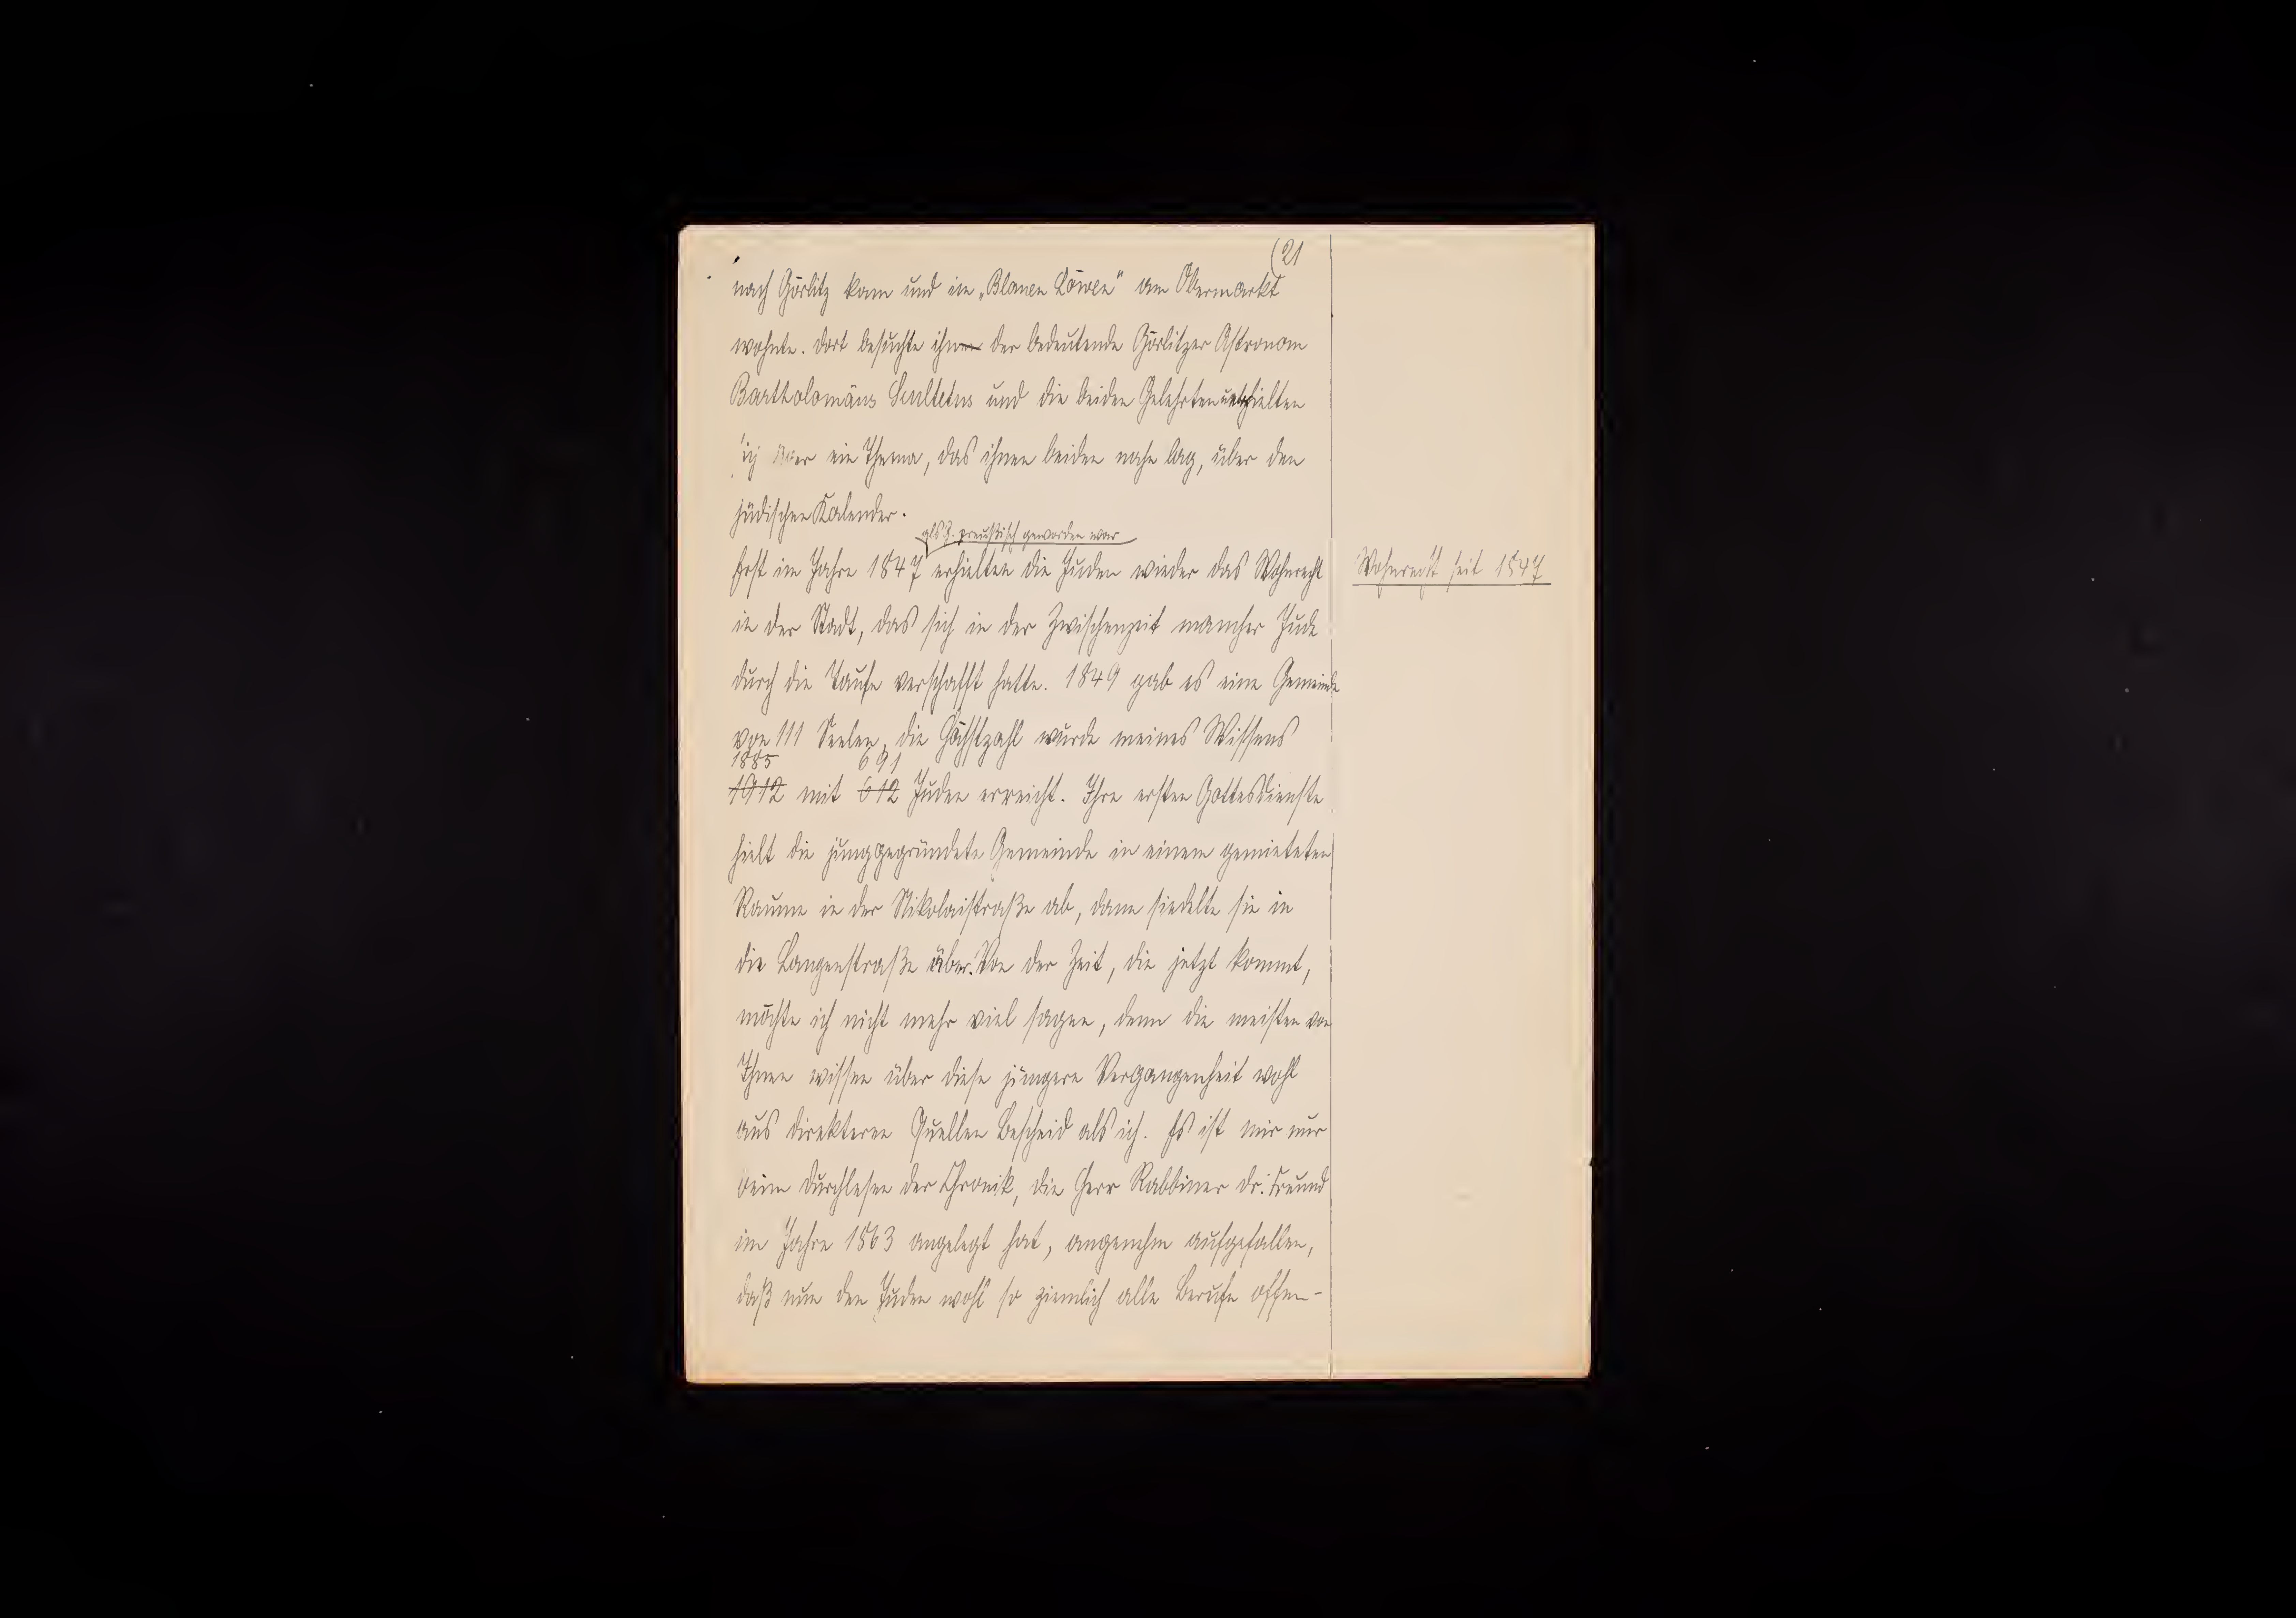 (21
nach Görlitz kam und im „Blauen Löwen" am Obermarkt
wohnte. Dort besuchte ihn der bedeutende Görlitzer Astronom
Bartholomäus Scultetus und die beiden Gelehrten unterhielten
sich über ein Thema, das ihnen beiden nahe lag, über den
jüdischen Kalender.
als G. preußisch geworden war
Erst im Jahre 1847 erhielten die Juden wieder das Wohnrecht
Wohnrecht seit 1847
in der Stadt, das sich in der Zwischenzeit mancher Jude
durch die Taufe verschafft hatte. 1849 gab es eine Gemeinde
von 111 Seelen, die Höchstzahl wurde meines Wissens
1885 691
1912 mit 612 Juden erreicht. Ihre ersten Gottesdienste
hielt die junggegründete Gemeinde in einem gemieteten
Raume in der Nikolaistraße ab, dann siedelte sie in
die Langenstraße über. Von der Zeit, die jetzt kommt,
möchte ich nicht mehr viel sagen, denn die meisten von
Ihnen wissen über diese jüngere Vergangenheit wohl
aus direkteren Quellen Bescheid als ich. Es ist mir nur
beim Durchlesen der Chronik, die Herr Rabbiner Dr. Freund
im Jahre 1863 angelegt hat, angenehm aufgefallen,
daß nun den Juden wohl so ziemlich alle Berufe offen-